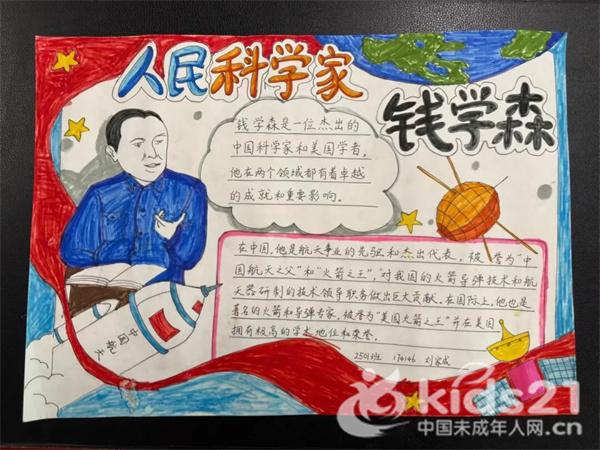 人民科学家
钱学森
钱学森是一位杰出的
中国科学家和美国学者,
他在两个领域都有着卓越
的成就和重要影响。
在中国,他是航天事业的先驱和杰出代表,被誉为“中
国航天之父”和“火箭之王”,对我国的火箭导弹技术和航
天器研制的技术领导职务做出巨大贡献。在国际上,他也是
著名的火箭和导弹专家,被誉为“美国火箭之王”并在美国
拥有极高的学术地位和荣誉。
2501班 174146 刘家成
中国航天
kids21
中国未成年人网.cn